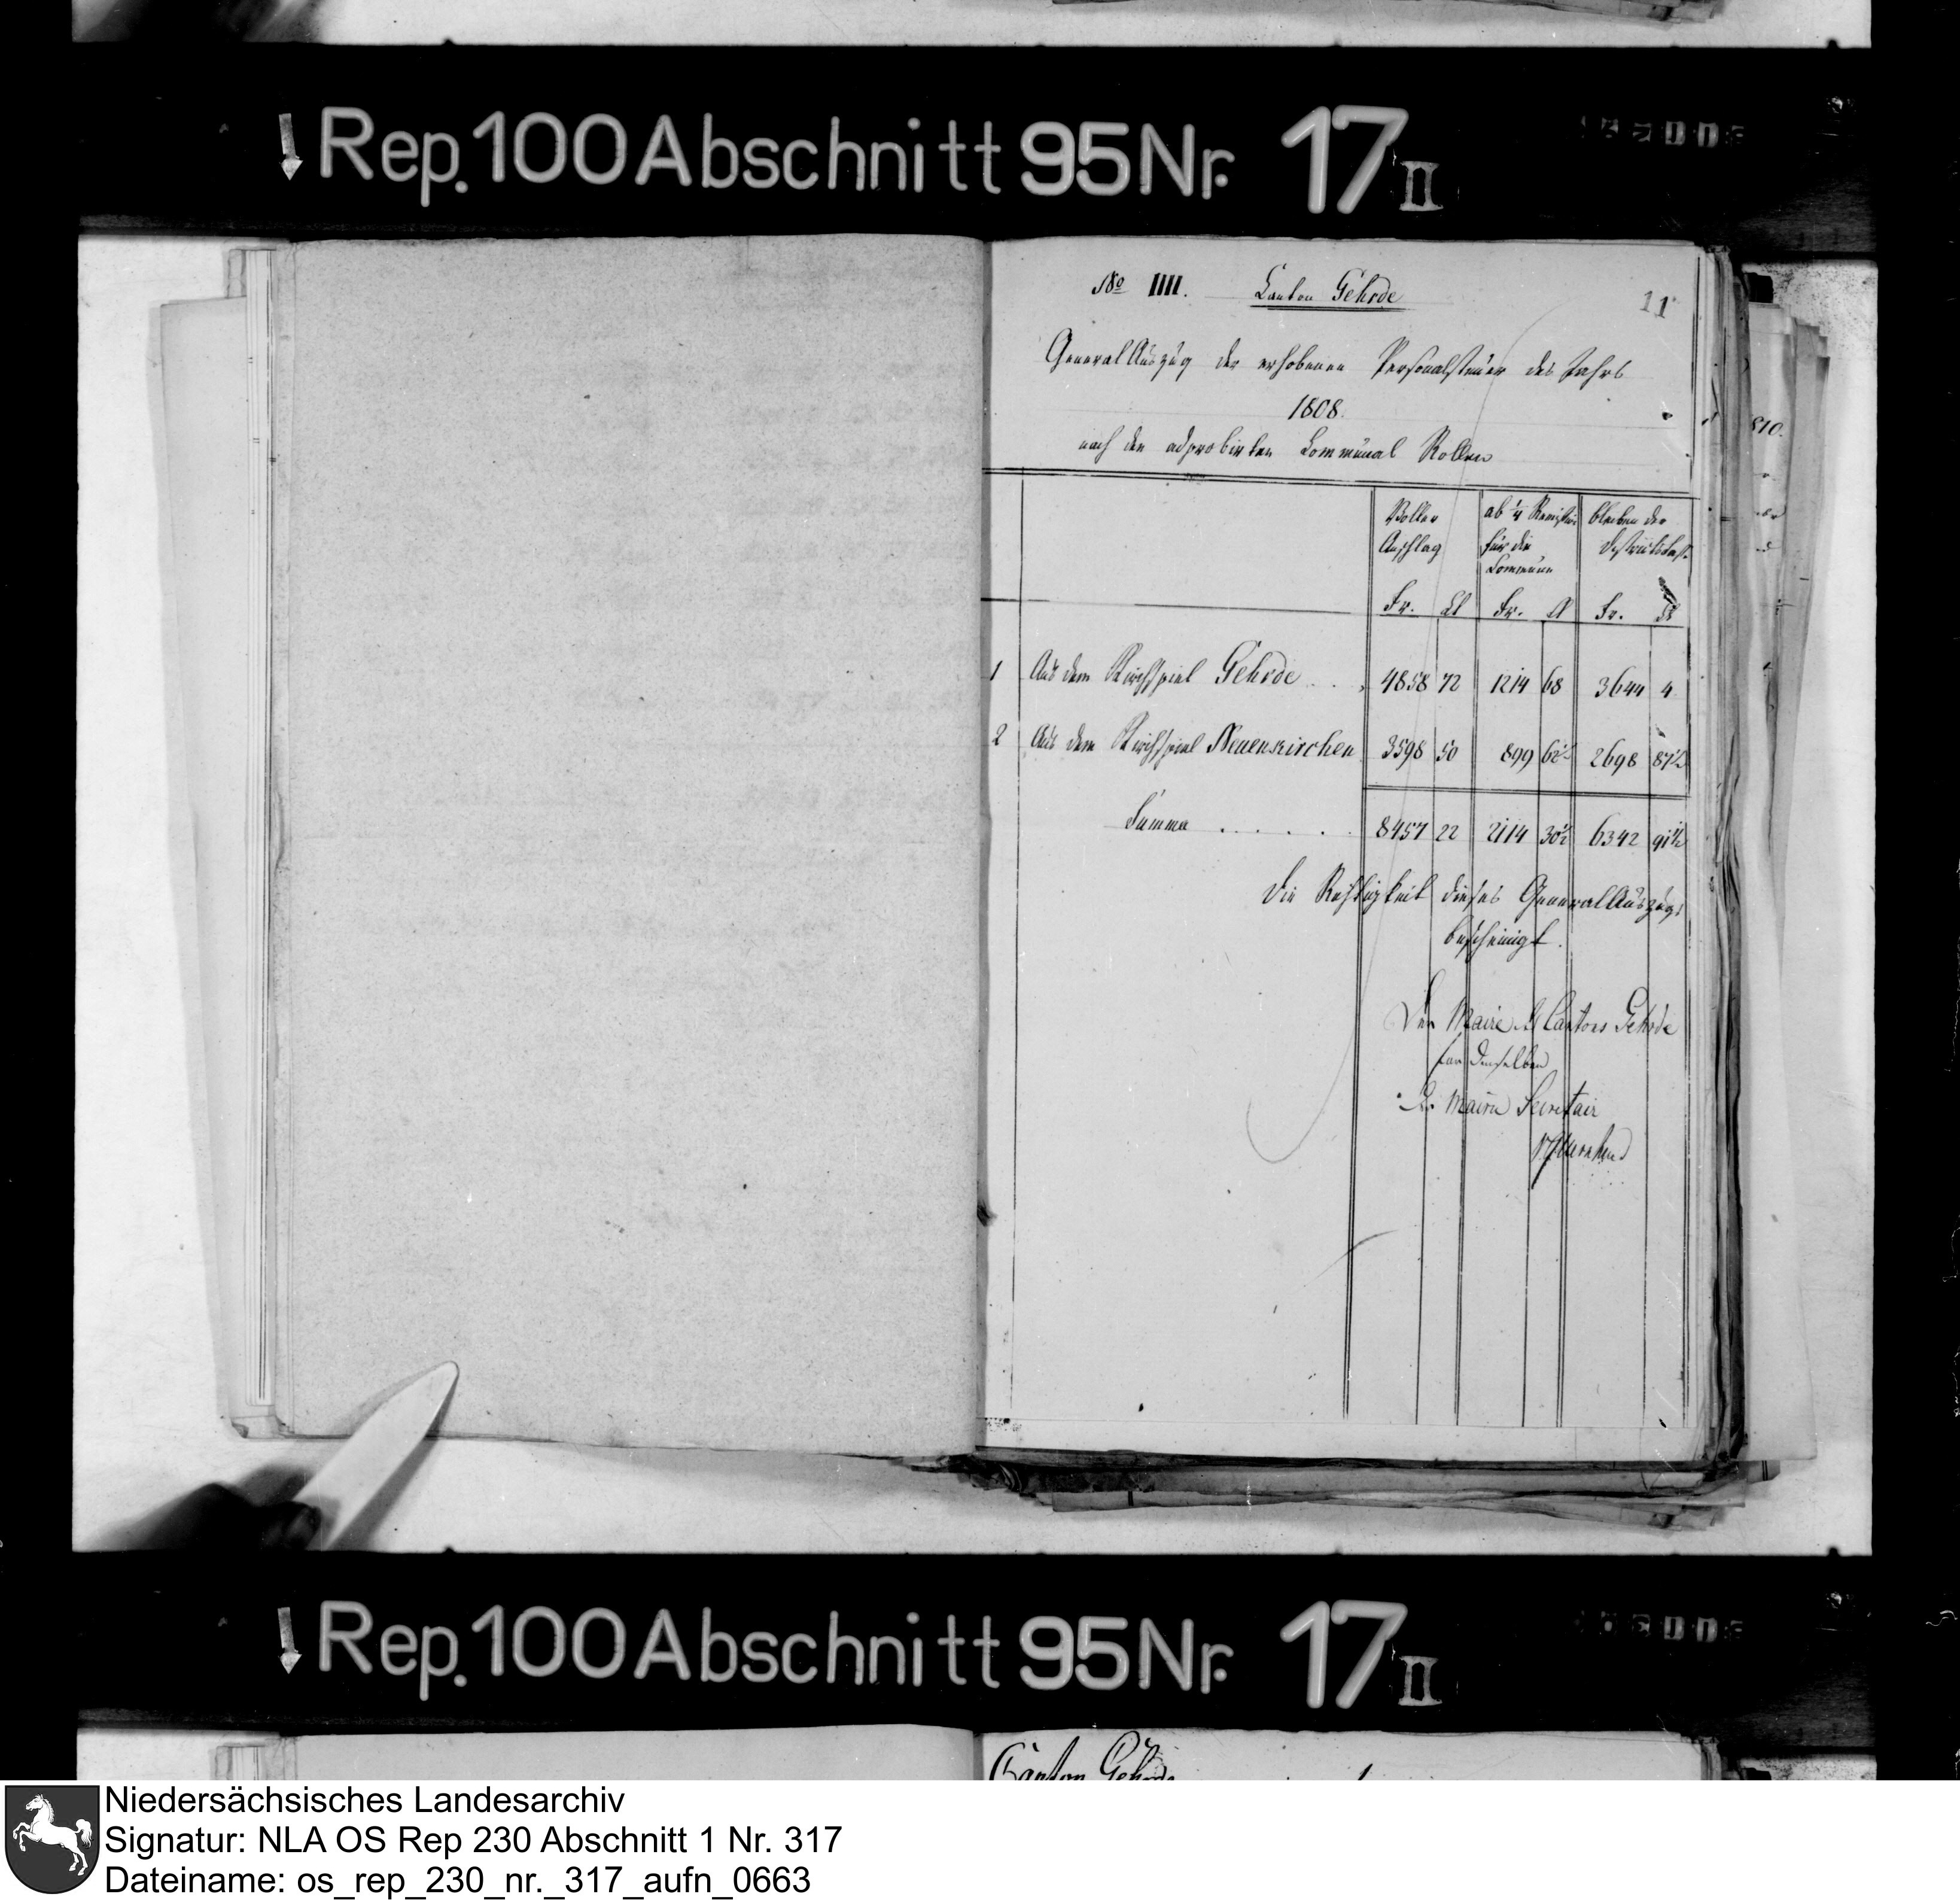 Rep. 100 Abschnitt 95 Nr. 17 II
No IIII. Canton Gehrde
11
General Auszug der erhobenen Personalsteuer des Jahrs
1808.
nach den adprobirten Communal Rollen
Voller Anschlag
ab 1/4 für die Commune
bleiben der
Fr. Ct Fr. Ct Fr. Ct
1 Aus dem Kirchspiel Gehrde . . . 4858 72 1214 68 3644 4
2 Aus dem Kirchspiel Neuenkirchen 3598 50 899 62½ 2698 87½
Summa . . . . . 8457 22 2114 30½ 6342 91½
Die Richtigkeit dieses General Auszugs
bescheinigt.
Der Maire des Cantons Gehrde
für denselben
Der Mairie Secretair
810.
Rep. 100 Abschnitt 95 Nr. 17 II
Canton Gehrde
Niedersächsisches Landesarchiv
Signatur: NLA OS Rep 230 Abschnitt 1 Nr. 317
Dateiname: os_rep_230_nr._317_aufn_0663